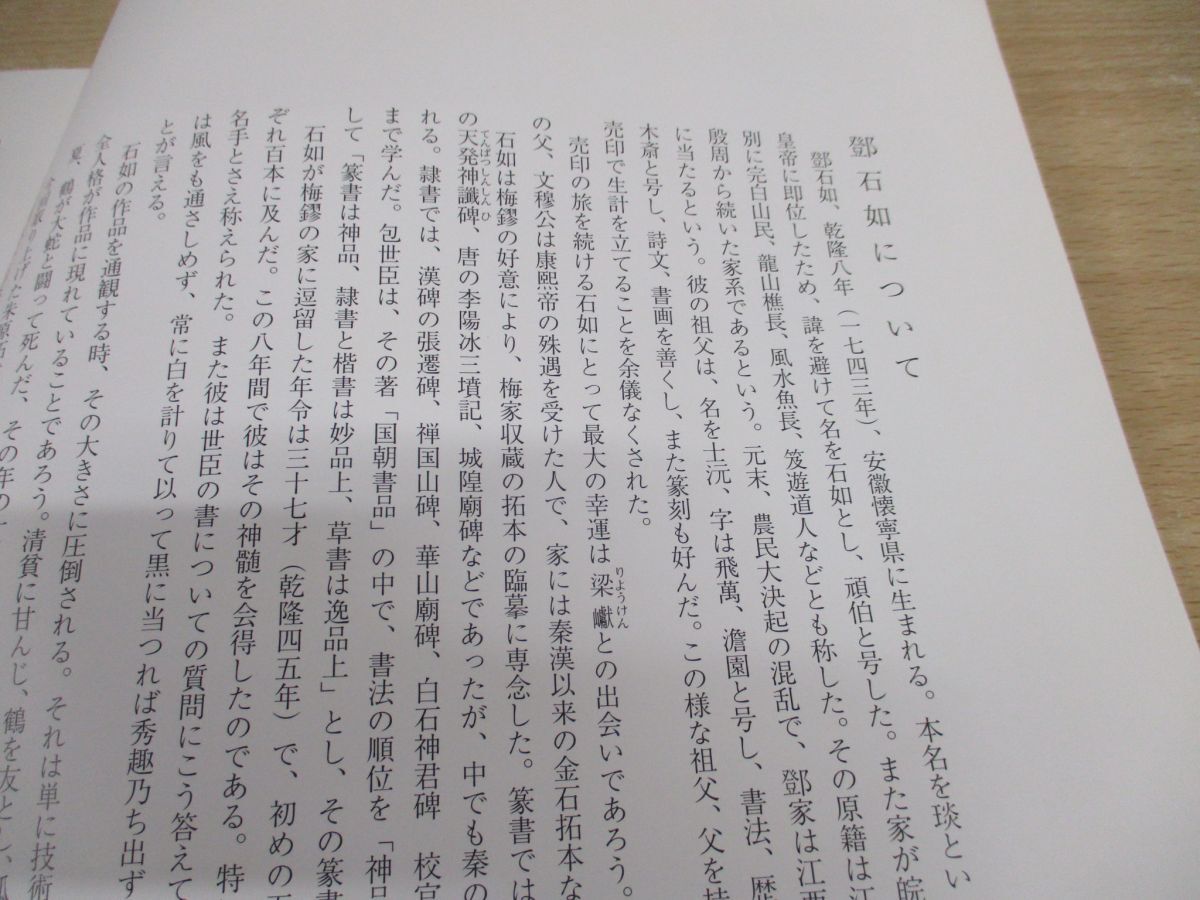 鄧石如について
鄧石如、乾隆八年（一七四三年）、安徽懐寧県に生まれる。本名を琰とい
皇帝に即位したため、諱を避けて名を石如とし、頑伯と号した。また家が皖
別に完白山民、龍山樵長、風水魚長、笈遊道人などとも称した。その原籍は江
殷周から続いた家系であるという。元末、農民大決起の混乱で、鄧家は江西
に当たるという。彼の祖父は、名を士沅、字は飛萬、澹園と号し、書法、歴
木斎と号し、詩文、書画を善くし、また篆刻も好んだ。この様な祖父、父を持
売印で生計を立てることを余儀なくされた。
売印の旅を続ける石如にとって最大の幸運は梁巘りようけんとの出会いであろう。
の父、文穆公は康熙帝の殊遇を受けた人で、家には秦漢以来の金石拓本な
石如は梅鏐の好意により、梅家収蔵の拓本の臨摹に専念した。篆書では
の天発神讖碑てんぱつしんしんひ、唐の李陽冰三墳記、城隍廟碑などであったが、中でも秦の
れる。隷書では、漢碑の張遷碑、禅国山碑、華山廟碑、白石神君碑　校官
まで学んだ。包世臣は、その著「国朝書品」の中で、書法の順位を「神品
して「篆書は神品、隷書と楷書は妙品上、草書は逸品上」とし、その篆書
石如が梅鏐の家に逗留した年令は三十七才（乾隆四五年）で、初めの五
ぞれ百本に及んだ。この八年間で彼はその神髄を会得したのである。特
名手とさえ称えられた。また彼は世臣の書についての質問にこう答えて
は風をも通さしめず、常に白を計りて以って黒に当つれば秀趣乃ち出ず
とが言える。
石如の作品を通観する時、その大きさに圧倒される。それは単に技術
全人格が作品に現れていることであろう。清貧に甘んじ、鶴を友とし、孤
夏、鶴が大蛇と闘って死んだ、その年の